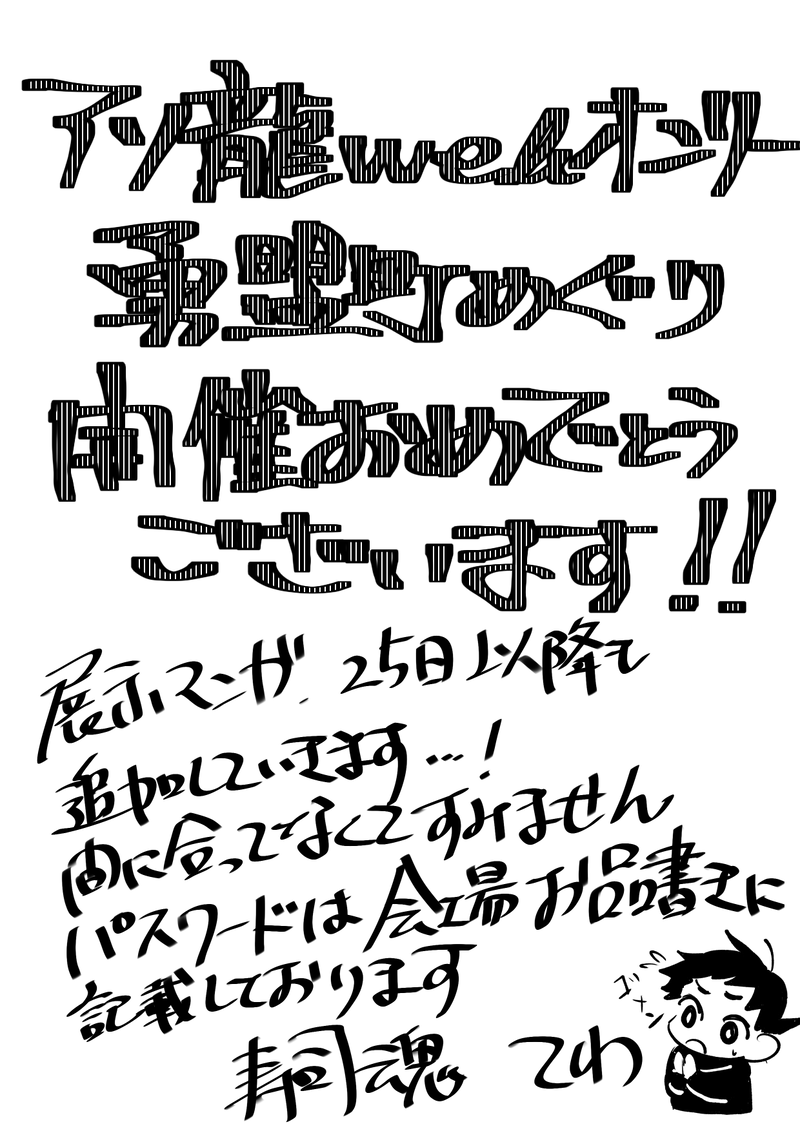 アソ龍webオンリー
勇盟町めぐり
開催おめでとう
ございます!!
展示マンガ 25日以降で
追加していきます…!
間に合ってなくてすみません
パスワードは会場お品書きに
記載しております
寿司魂 てわ
ゴメン